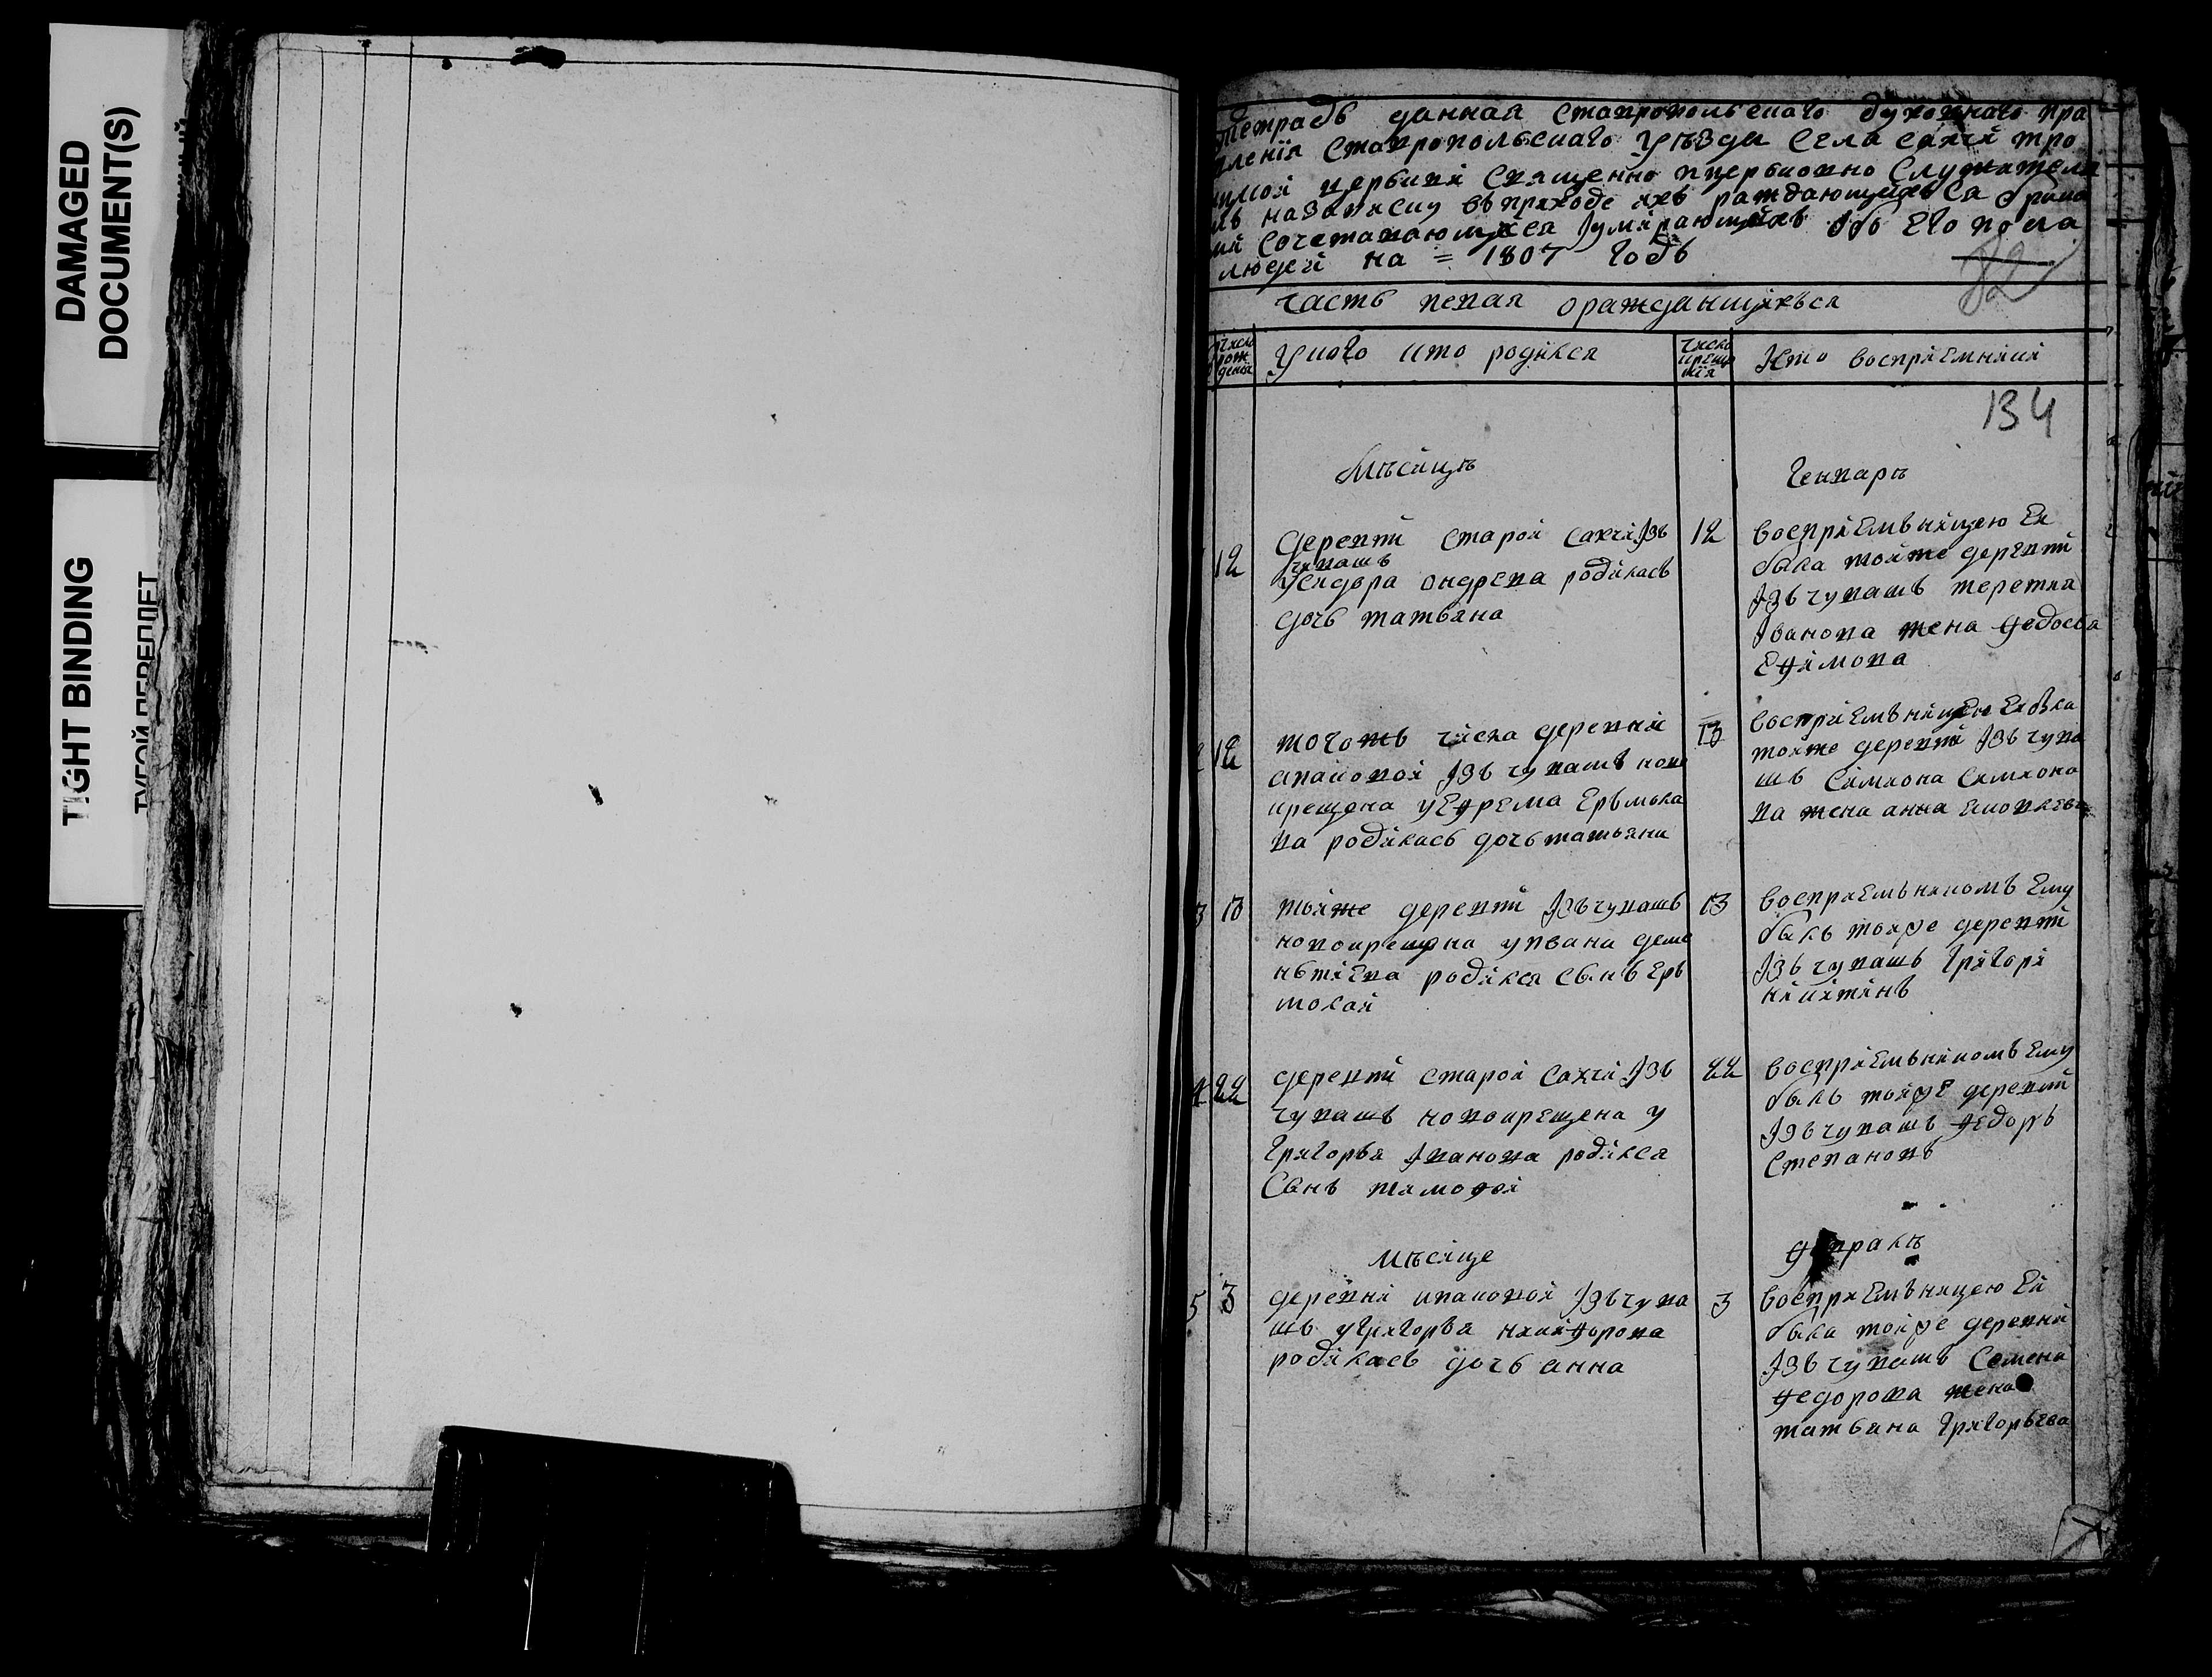 DAMAGED
DOCUMENT(S)
TIGHT BINDING
ТУГОЙ ПЕРЕПЛЕТ
тетрадь данная ставропольскаго духовнаго пра
вленiя ставропольскаго уѣзда села сахчи тро
ицкой церькви священно ицерьковно служителя
мъ назаписку въприходе ихъ раждающихъся брако
мъ сочетавающихся iумирающихъ обо его пола
людей на = 1807 годъ
82
часть первая ораждающихъся
число рож денiя
у кого кто родился
число креще нiя
Кто восприемники
134
Мѣсяцъ
Генварь
12
Деревни старой сахчи Iзъ
чувашъ
дочь татьяна
12
восприемъницею Ей
была тойже деревни
Iзъ чувашъ терентия
Iванова жена федосья
Ефимова
2 12
тогожъ числа деревни
Iзъ чувашъ ново
крещена у Ефрема Ермола
ва родилась дочь татьяна
13
восприемъницею Ей была
тойже деревни Iзъ чува
шъ симиона симионо
ва жена анна
3 13
тойже деревни Iзъ чувашъ
новокрещена уввана деме
нътиева родился сынъ Ерь
молай
13
восприемъникомъ Ему
былъ тойже деревни
Iзъ чувашъ григорй
никитинъ
4 22
деревни старой сахчи Iзъ
чувашъ новокрещена у
григорья Iванова родился
Сынъ тимофей
22
восприемъникомъ Ему
былъ тойже деревни
Iзъ чувашъ федоръ
степановъ
мѣсяце
февраль
5 3
деревни Iзъ чува
шъ угригорья никифорова
родилась дочь анна
3
восприемъницею Ей
была тойже деревни
Iзъ чувашъ Семена
федорова жена
татьяна григорьева